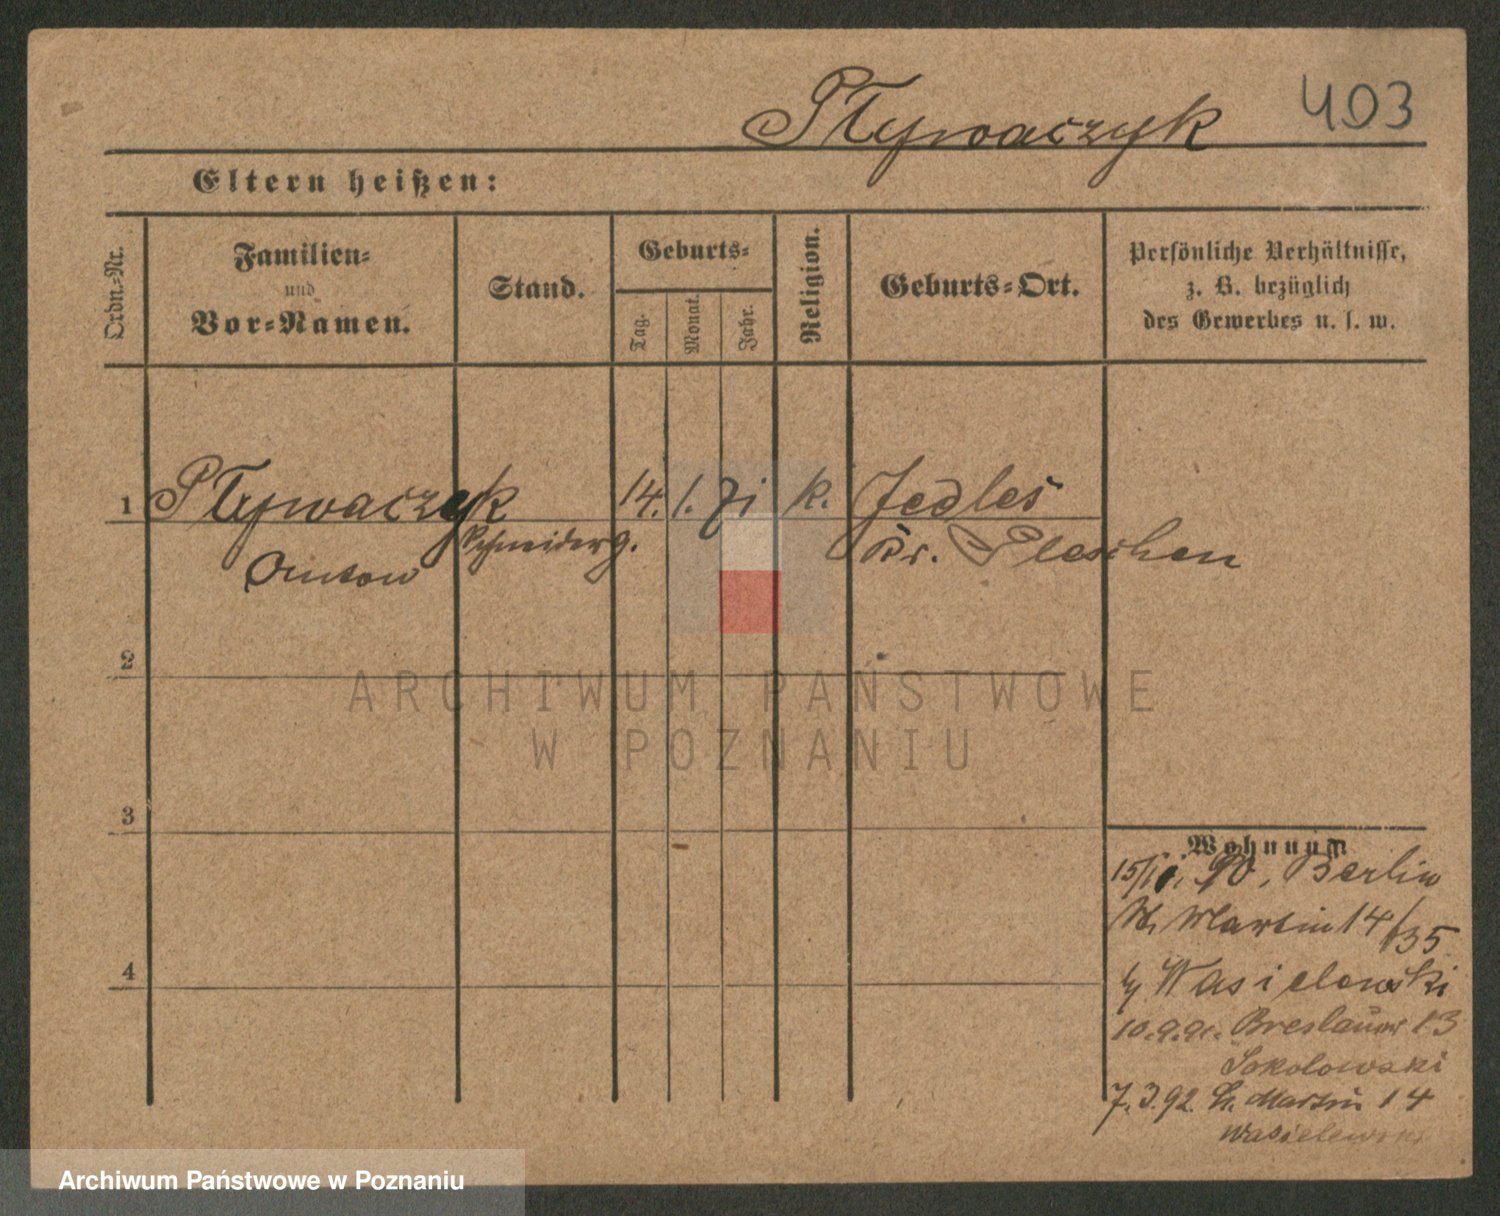 Pływaczyk 403
Eltern heißen:
Ordn.-Nr.
Familien-
und
Vor-Namen.
Stand.
Geburts-
Tag.
Monat.
Jahr.
Religion.
Geburts-Ort.
Persönliche Verhältnisse,
z. B. bezüglich
des Gewerbes u. s. w.
1 Pływaczyk 14. 1. 71 k. Jedleś
Anton Schneiderg. Kr. Pleschen
2
3
4
Wohnung
90, Berlin
Martin 14/35
Wasielewski
10.9.91. Breslauer 13
Sokolowski
7.3.92. St. Martin 14
Wasielewski
ARCHIWUM PAŃSTWOWE
W POZNANIU
Archiwum Państwowe w Poznaniu